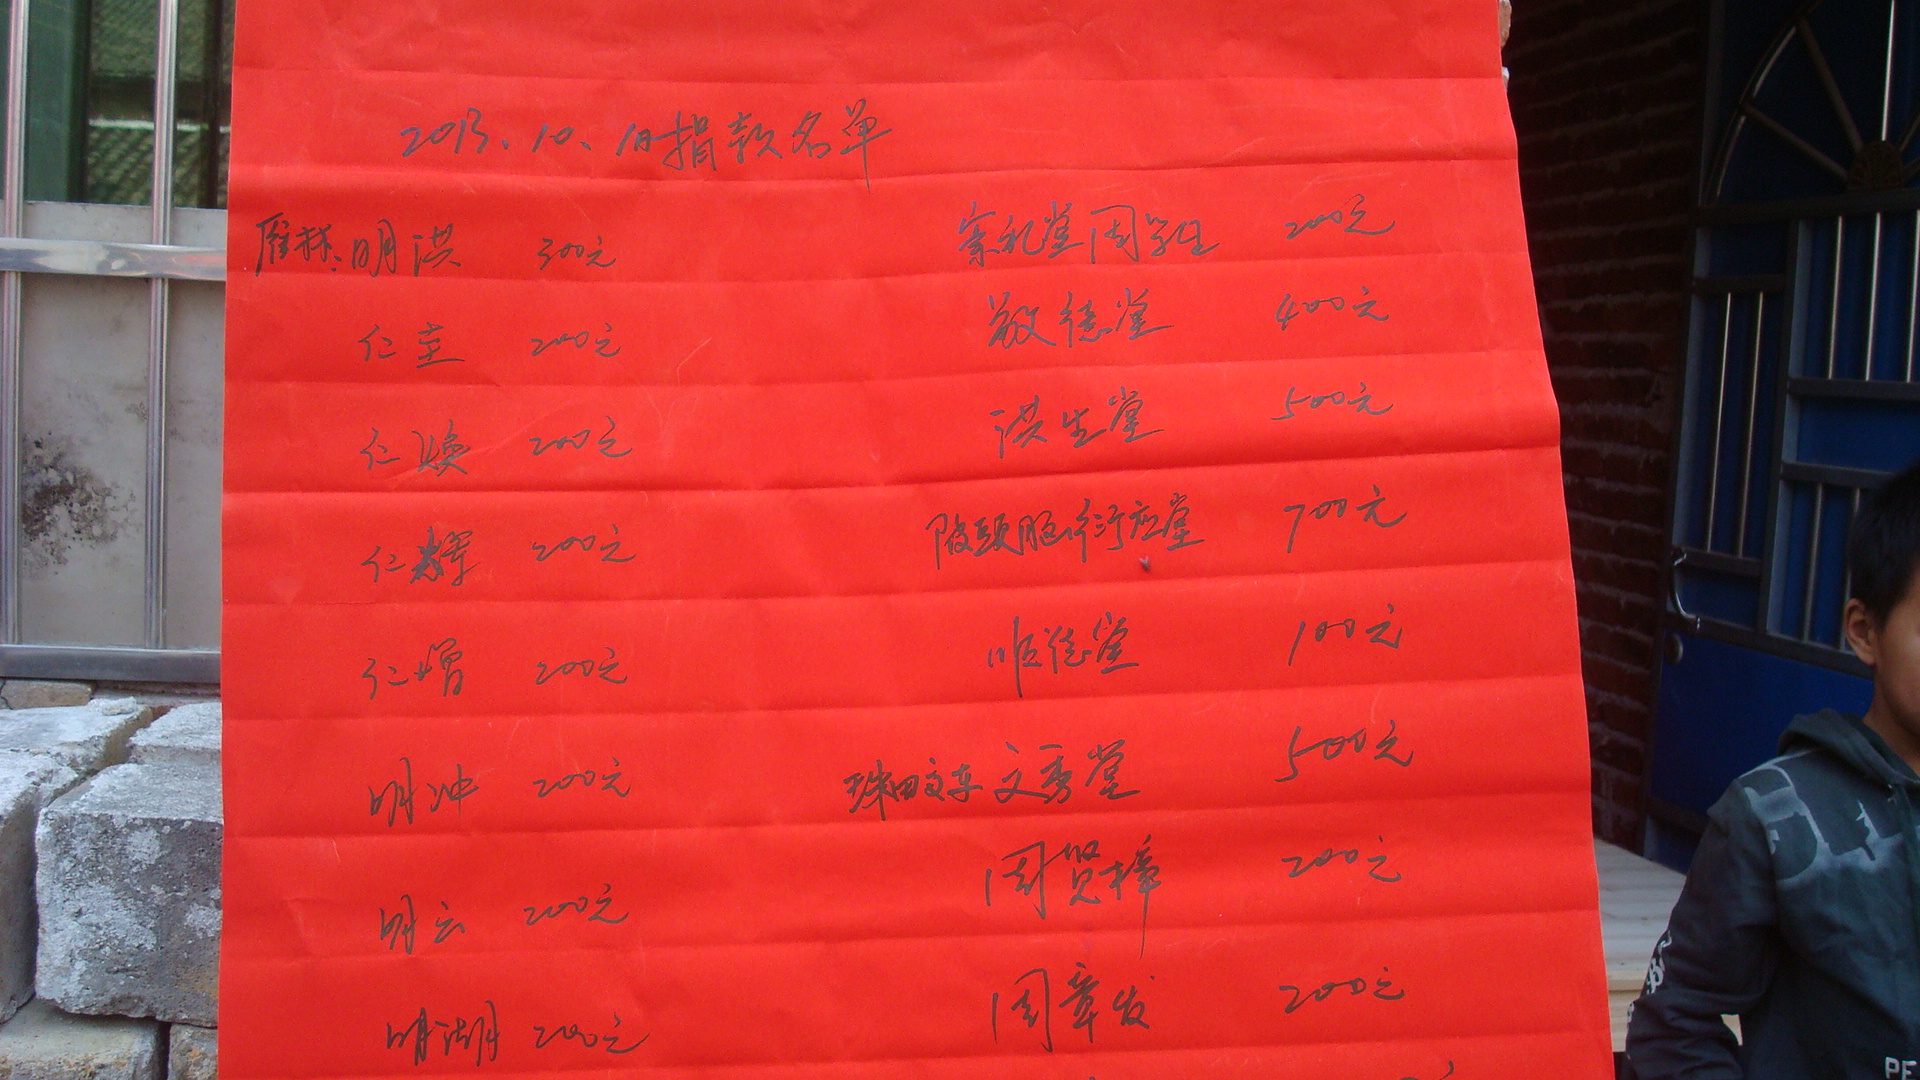 2013、10、1日捐款名单
雁林：明洪 300元
仁圭 200元
仁焕 200元
仁辉 200元
仁增 200元
明冲 200元
明云 200元
明湖 200元
崇礼堂周学生 200元
敬德堂 400元
洪生堂 500元
陂头脑衍庆堂 700元
顺德堂 100元
珠田文车文秀堂 500元
周贤樟 200元
周章发 200元
PE